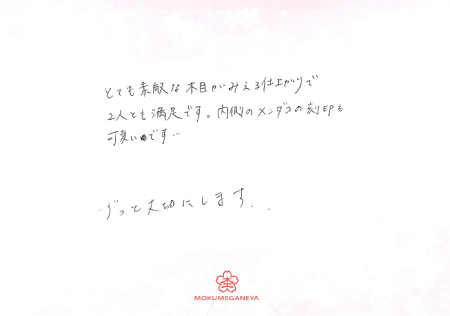 とても素敵な木目がみえる仕上がりで
2人とも満足です。内側のメンダコの刻印も
可愛いです…
ずっと大切にします...
杢
MOKUMEGANEYA